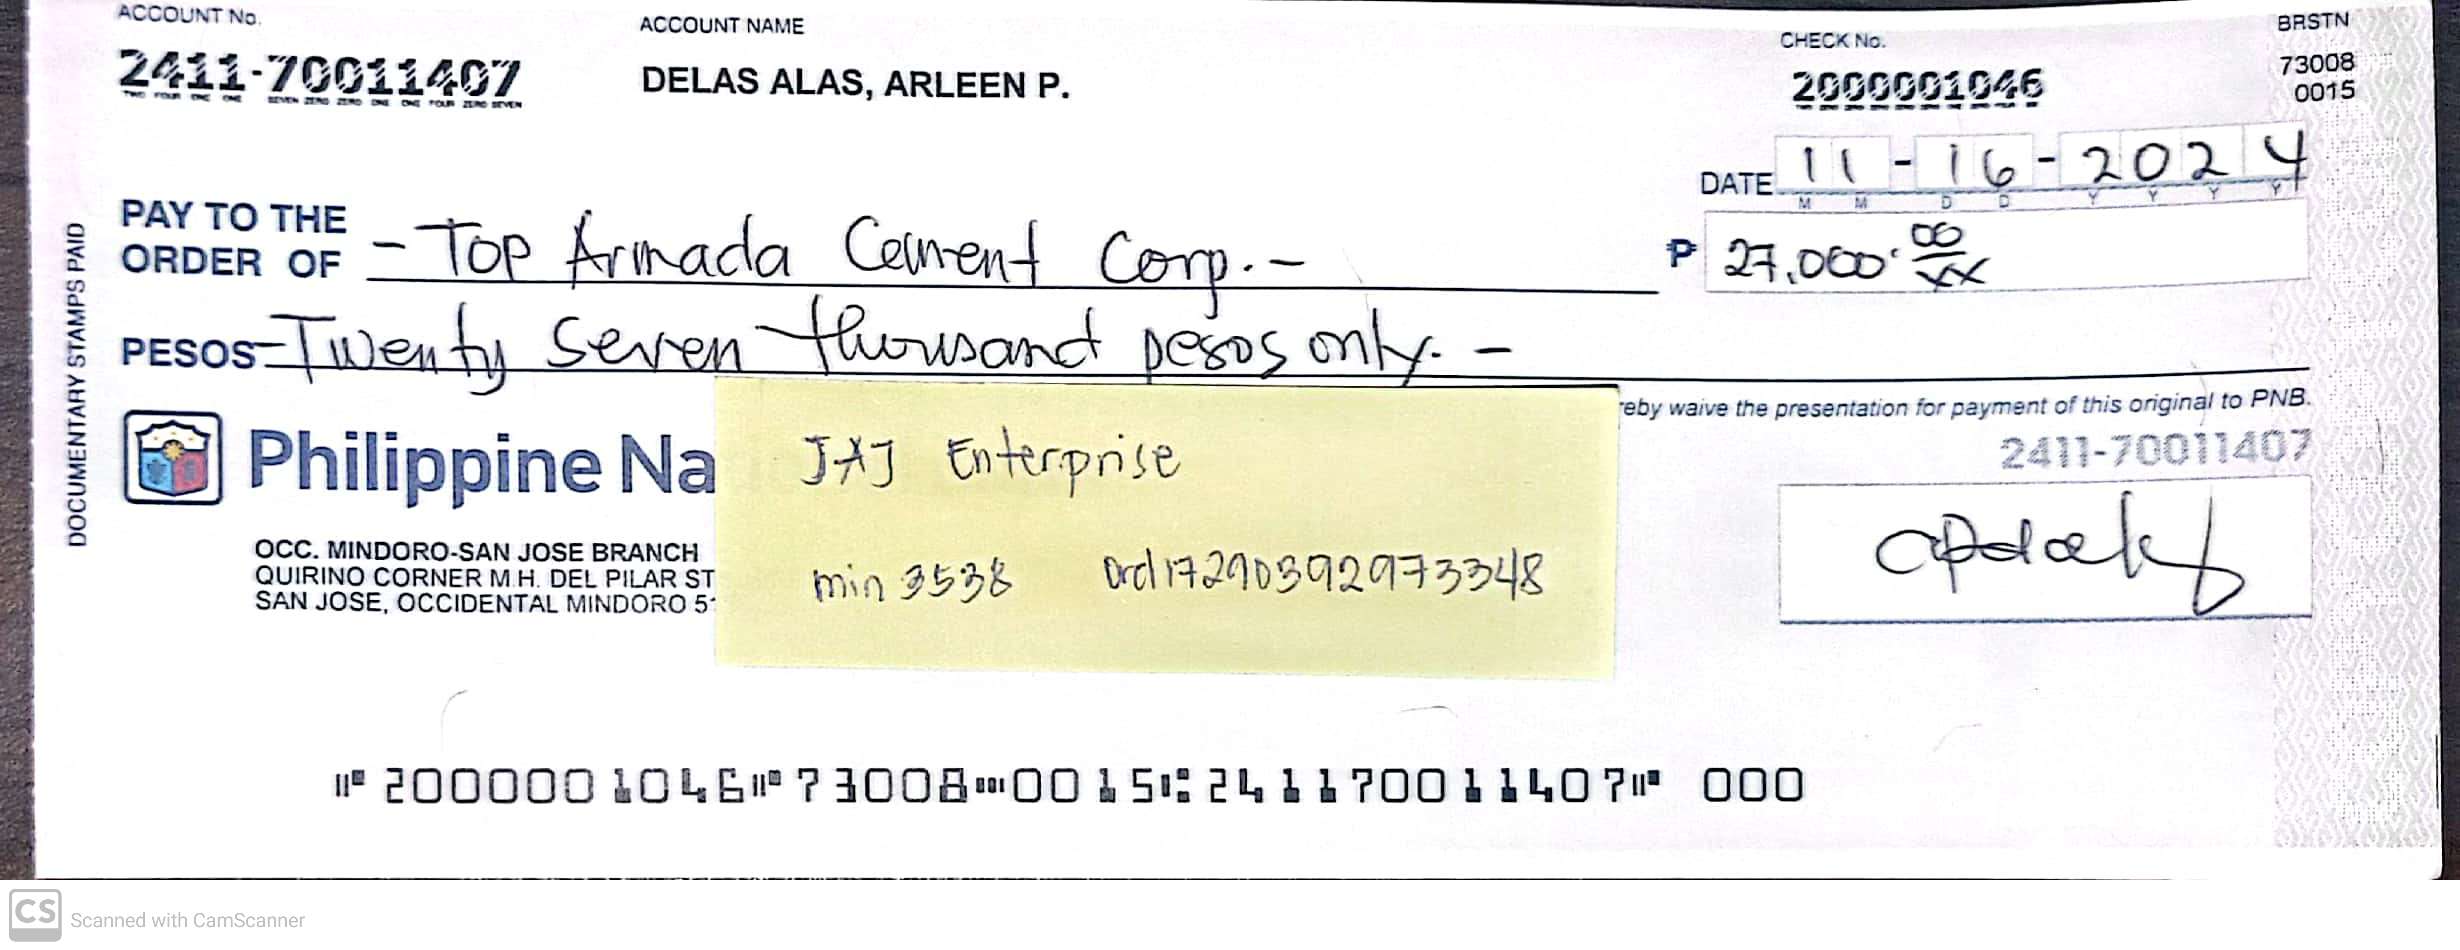 ACCOUNT No.
ACCOUNT NAME
CHECK No.
BRSTN
2411-70011407
TWO FOUR ONE ONE SEVEN ZERO ZERO ONE ONE FOUR ZERO SEVEN
DELAS ALAS, ARLEEN P.
2000001046
73008
0015
DATE 11-16-2024
M M D D Y Y Y Y
PAY TO THE
ORDER OF - Top Armada Cement Corp. -
₱ 27,000.00/xx
PESOS - Twenty seven thousand pesos only. -
DOCUMENTARY STAMPS PAID
eby waive the presentation for payment of this original to PNB.
Philippine Na
2411-70011407
JAJ Enterprise
OCC. MINDORO-SAN JOSE BRANCH
QUIRINO CORNER M.H. DEL PILAR ST
SAN JOSE, OCCIDENTAL MINDORO 5
min 3538 ord17290392973348
⑈2000001046⑈73008⑉0015⑆241170011407⑈ 000
CS Scanned with CamScanner